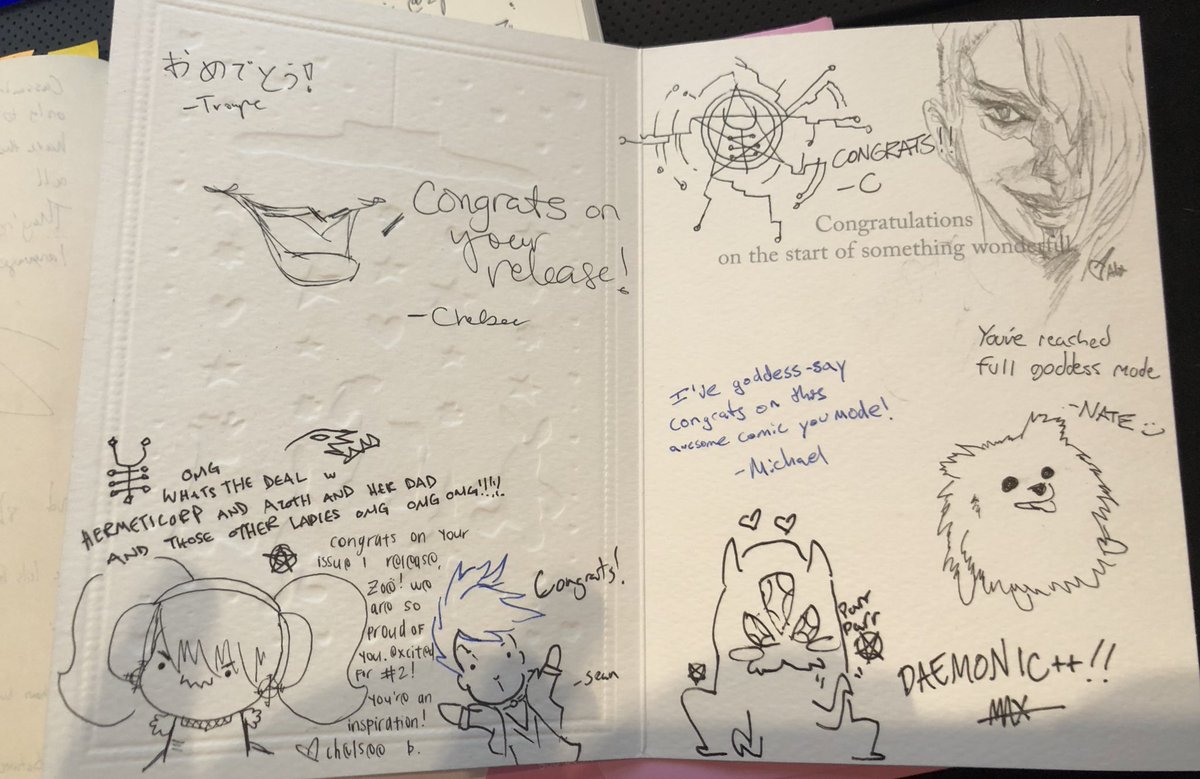 おめでとう!
-Troupe
Congrats on
your
release!
-Chelsea
OMG
WHATS THE DEAL w
HERMETICORP AND AZOTH AND HER DAD
AND THOSE OTHER LADIES OMG OMG OMG!!!!!
congrats on your
issue 1 release,
Zoë! we
are so
proud of
you. excited
for #2!
you're an
inspiration!
♡ chelsea b.
Congrats!
-Sean
CONGRATS!!
-C
Congratulations
on the start of something wonderful.
I've goddess-say
congrats on this
awesome comic you mode!
-Michael
You've reached
full goddess mode
-NATE
Purr
Purr
DAEMONIC++!!
MAX